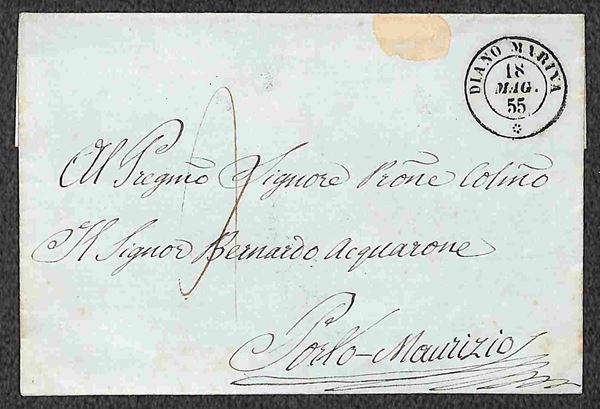 DIANO MARINA
18
MAG.
55
Al Pregmo Signore Prone Colmo
Il Signor Bernardo Acquarone
Porto-Maurizio